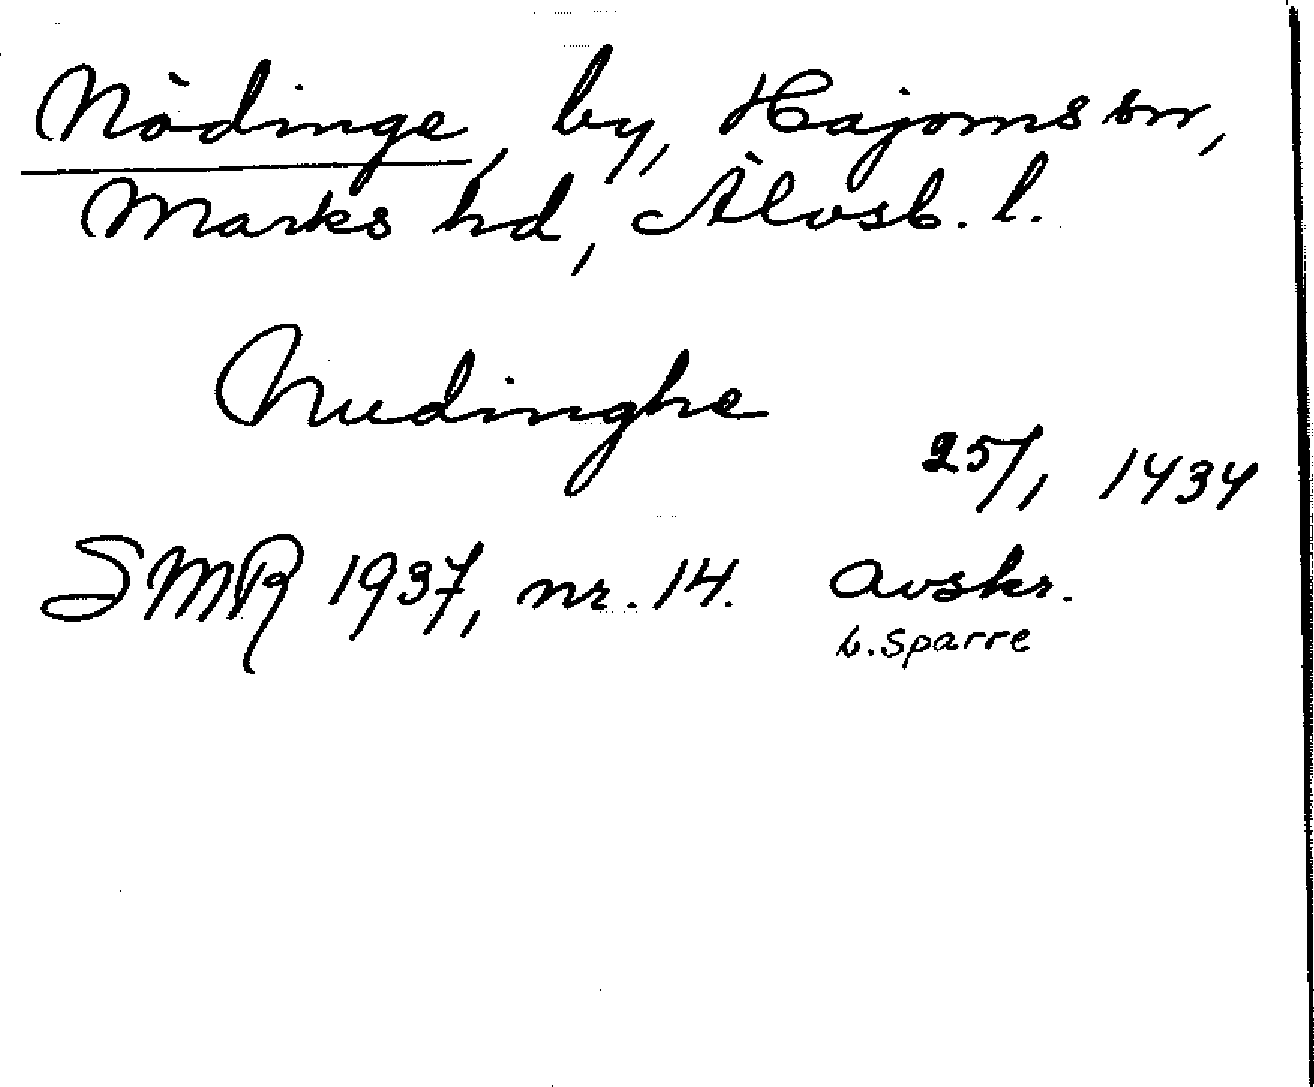 Nödinge, by, Hajoms sn,
Marks hd, Älvsb. l.
Nudinghe
25/1 1434
SMR 1937, nr. 14. avskr.
b. Sparre